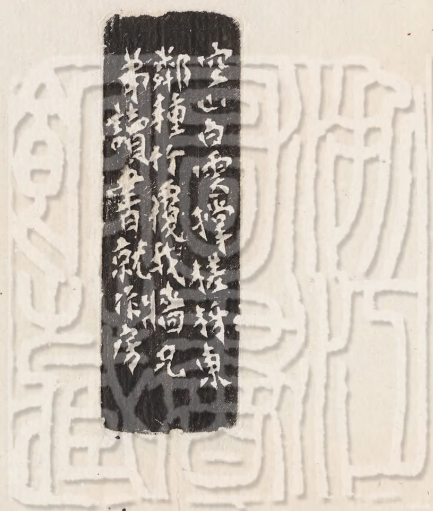 空山白雲擇樓梅東
鄰種竹覆我牆兄
弟讀書就作房